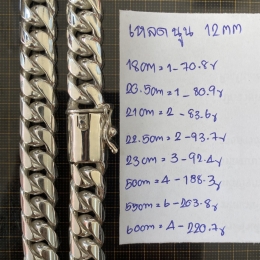 เหลดนูน 12mm
18cm = 1 - 70.8γ
20.5cm = 1 - 80.9γ
21cm = 2 - 83.6γ
22.5cm = 2 - 93.7γ
23cm = 3 - 92.4γ
50cm = 4 - 188.3γ
55cm = 6 - 203.8γ
60cm = 4 - 220.7γ